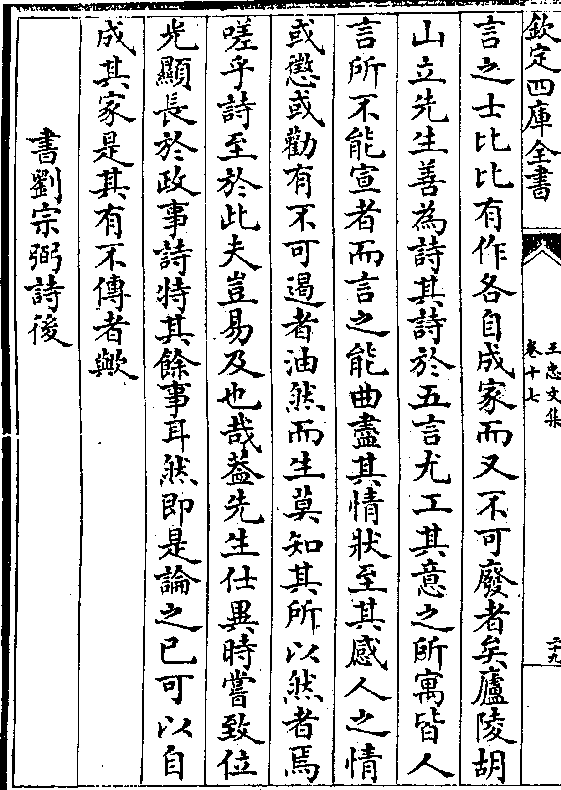 欽定四庫全書
王忠文集
卷十七
二十九
言之士比比有作各自成家而又不可廢者矣廬陵胡
山立先生善為詩其詩於五言尤工其意之所寓皆人
言所不能宣者而言之能曲盡其情狀至其感人之情
或懲或勸有不可遏者油然而生莫知其所以然者焉
嗟乎詩至於此夫豈易及也哉葢先生仕異時嘗致位
光顯長於政事詩特其餘事耳然即是論之已可以自
成其家是其有不傳者歟
書劉宗弼詩後